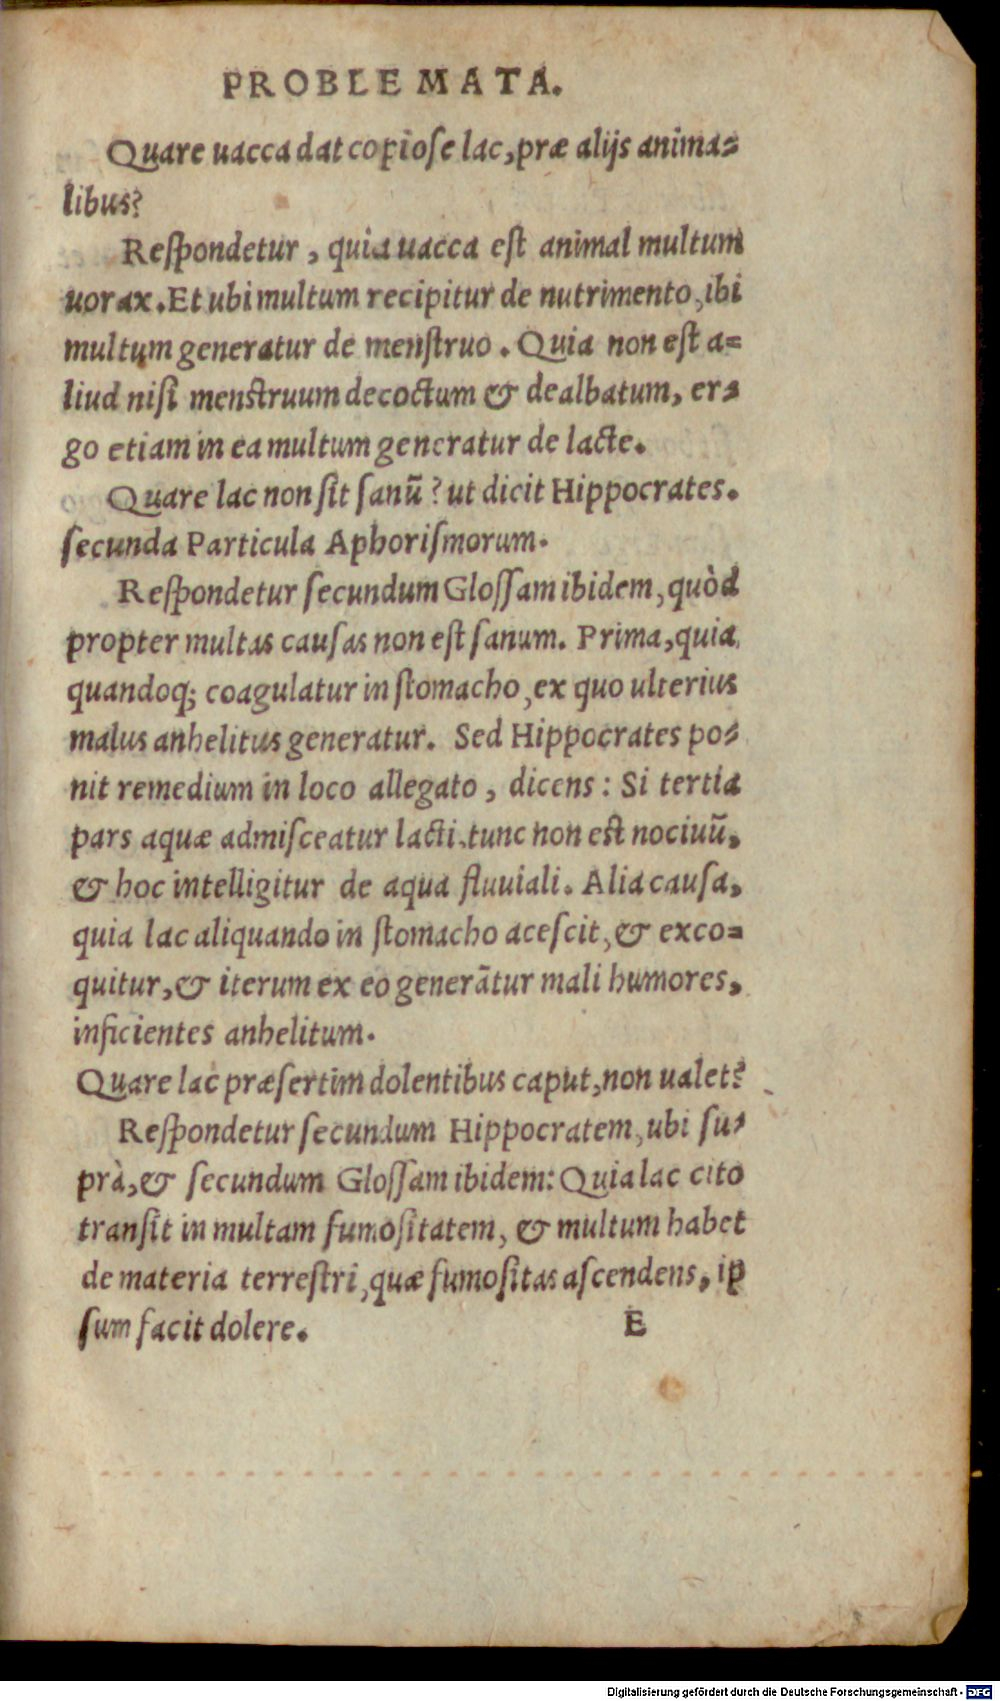 PROBLEMATA.
Quare uacca dat copiose lac, præ alijs anima=
libus?
Respondetur, quia uacca est animal multum
uorax. Et ubi multum recipitur de nutrimento, ibi
multum generatur de menstruo. Quia non est a=
liud nisi menstruum decoctum & dealbatum, er=
go etiam in ea multum generatur de lacte.
Quare lac non sit sanũ? ut dicit Hippocrates.
secunda Particula Aphorismorum.
Respondetur secundum Glossam ibidem, quòd
propter multas causas non est sanum. Prima, quia
quandoq; coagulatur in stomacho, ex quo ulterius
malus anhelitus generatur. Sed Hippocrates po=
nit remedium in loco allegato, dicens: Si tertia
pars aquæ admisceatur lacti, tunc non est nociuũ,
& hoc intelligitur de aqua fluuiali. Alia causa,
quia lac aliquando in stomacho acescit, & exco=
quitur, & iterum ex eo generãtur mali humores,
inficientes anhelitum.
Quare lac præsertim dolentibus caput, non ualet?
Respondetur secundum Hippocratem, ubi su=
prà, & secundum Glossam ibidem: Quia lac cito
transit in multam fumositatem, & multum habet
de materia terrestri, quæ fumositas ascendens, ip
sum facit dolere. E
Digitalisierung gefördert durch die Deutsche Forschungsgemeinschaft - DFG